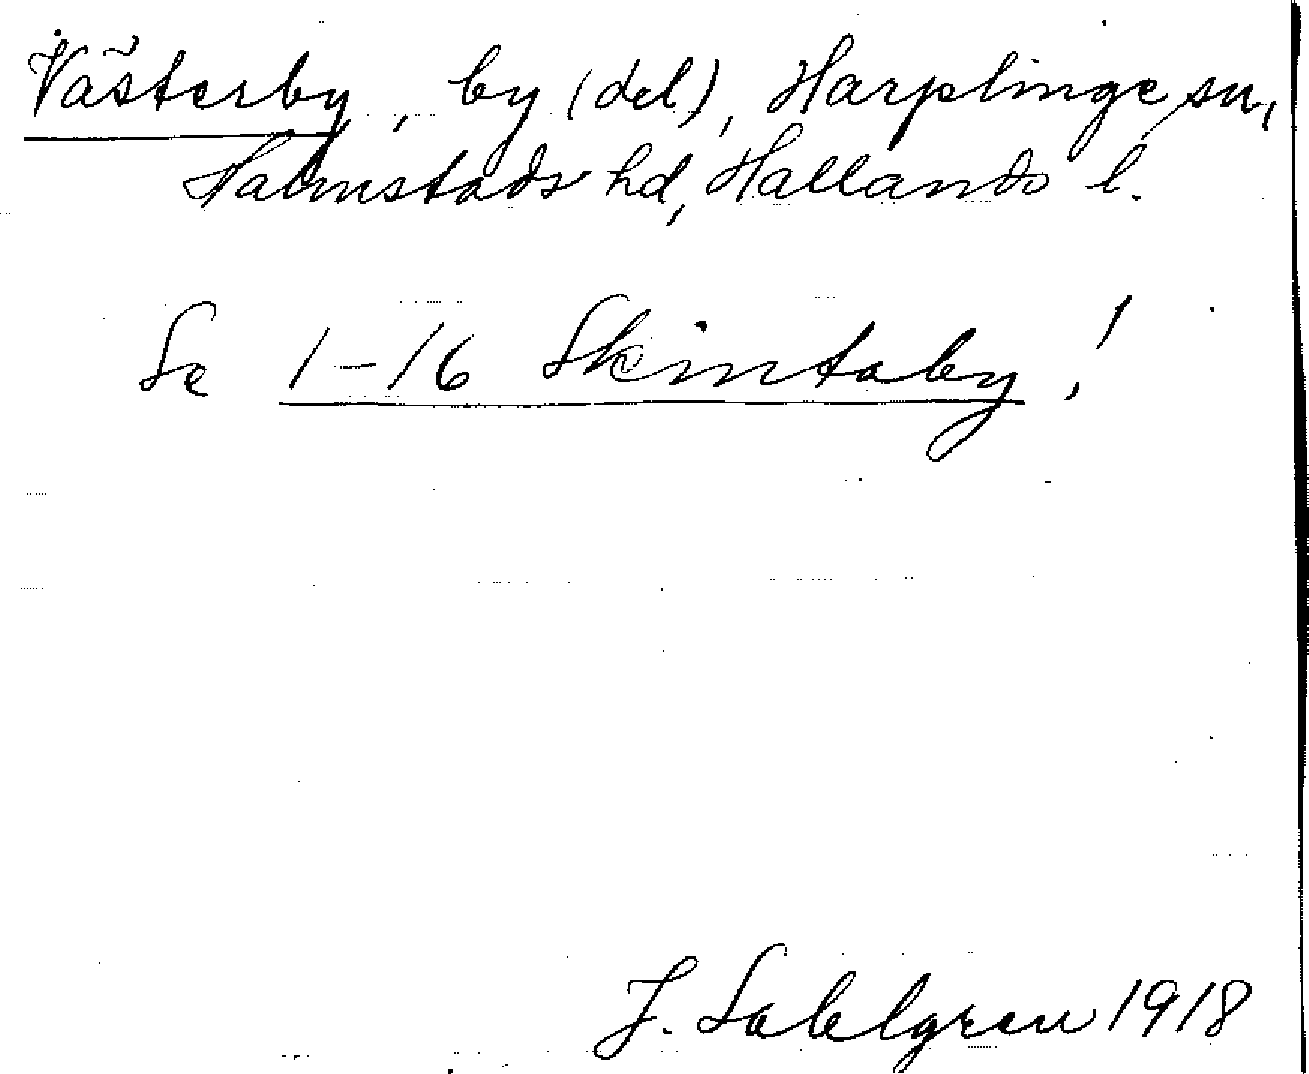 Västerby, by (del), Harplinge sn,
Halmstads hd, Hallands l.
Se 1-16 Skintaby!
J. Sahlgren 1918